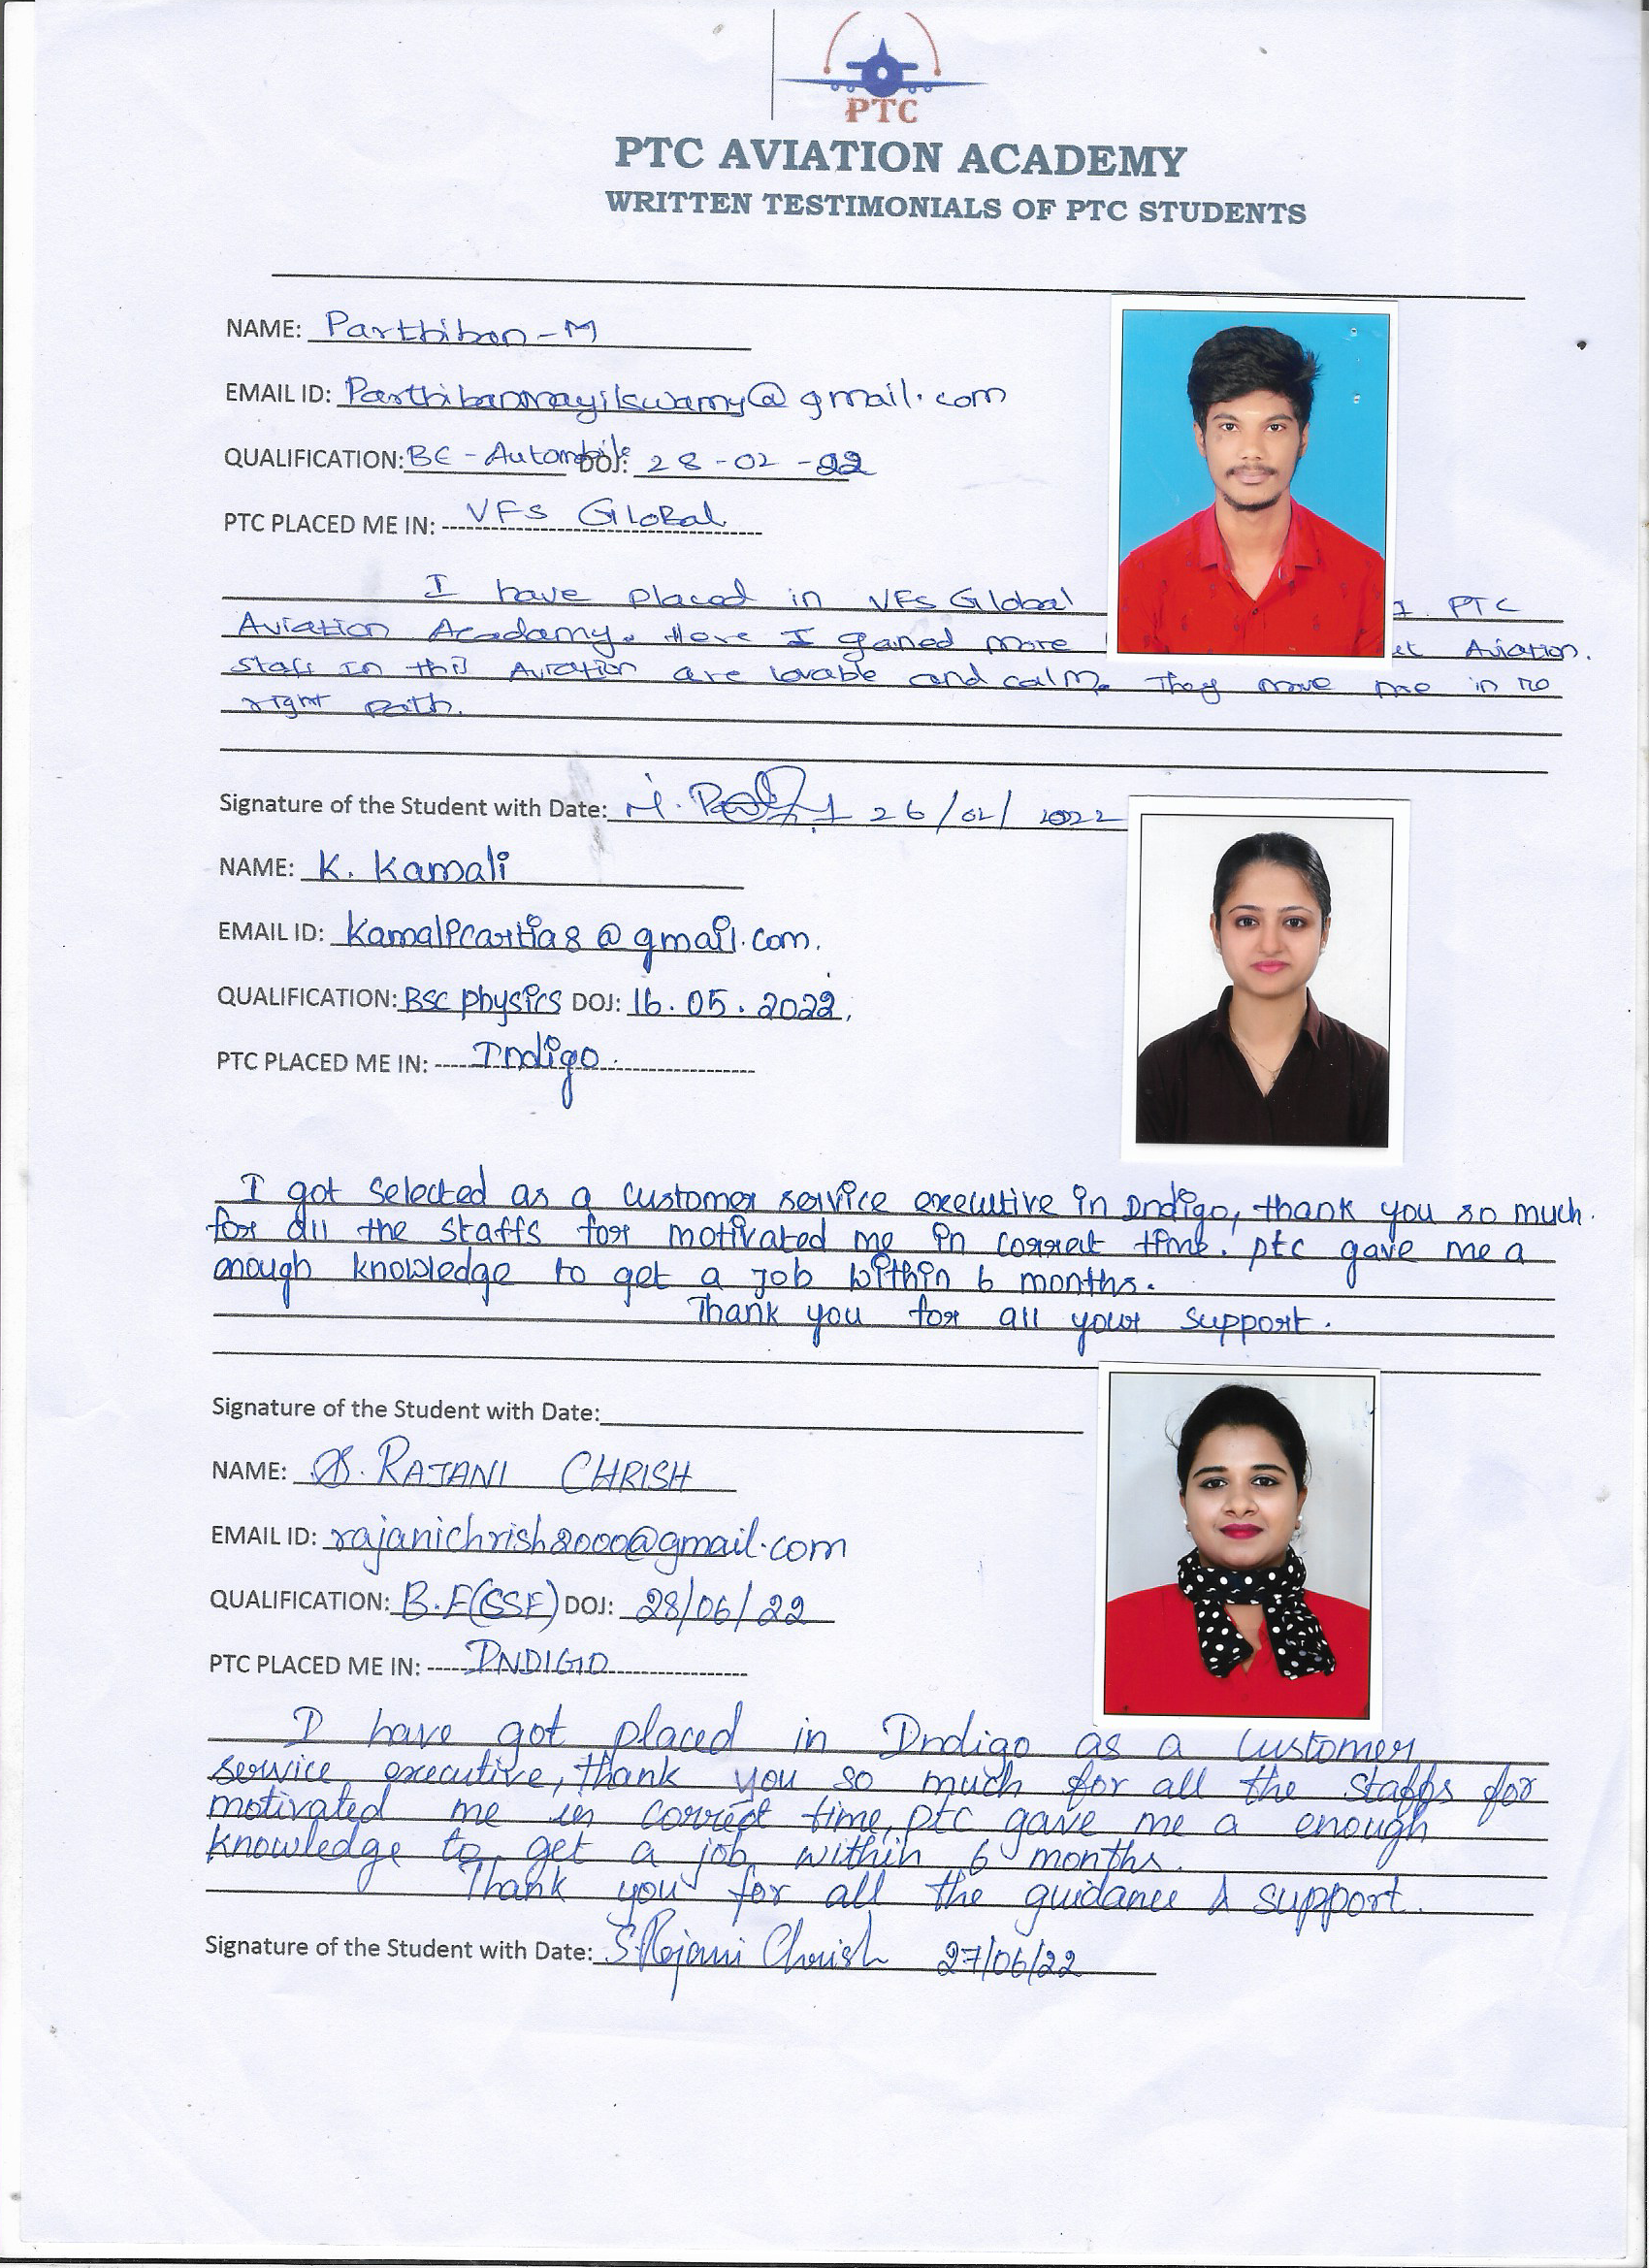 PTC
PTC AVIATION ACADEMY
WRITTEN TESTIMONIALS OF PTC STUDENTS
NAME: Parthiban - M
EMAIL ID: Parthibanmayilswamy@gmail.com
QUALIFICATION: BE - Automobile DOJ: 28-02-22
PTC PLACED ME IN: VFS Global
I have placed in VFS Global PTC
Aviation Academy. Here I gained more Aviation.
Staff in this Aviation are lovable and calm. They move me in
right path.
Signature of the Student with Date: 26/02/2022
NAME: K. Kamali
EMAIL ID: @gmail.com.
QUALIFICATION: BSC physics DOJ: 16.05.2022,
PTC PLACED ME IN: Indigo
I got selected as a customer service executive in Indigo, thank you so much.
for all the staffs for motivated me in correct time. ptc gave me a
enough knowledge to get a job within 6 months.
Thank you for all your support.
Signature of the Student with Date:
NAME: S. RAJANI CHRISH
EMAIL ID: rajanichrish2000@gmail.com
QUALIFICATION: B.E(CSE) DOJ: 28/06/22
PTC PLACED ME IN: INDIGO
I have got placed in Indigo as a customer
service executive, thank you so much for all the staffs for
motivated me in correct time, ptc gave me a enough
knowledge to get a job within 6 months.
Thank you for all the guidance & support.
Signature of the Student with Date: S. Rajani Chrish 27/06/22